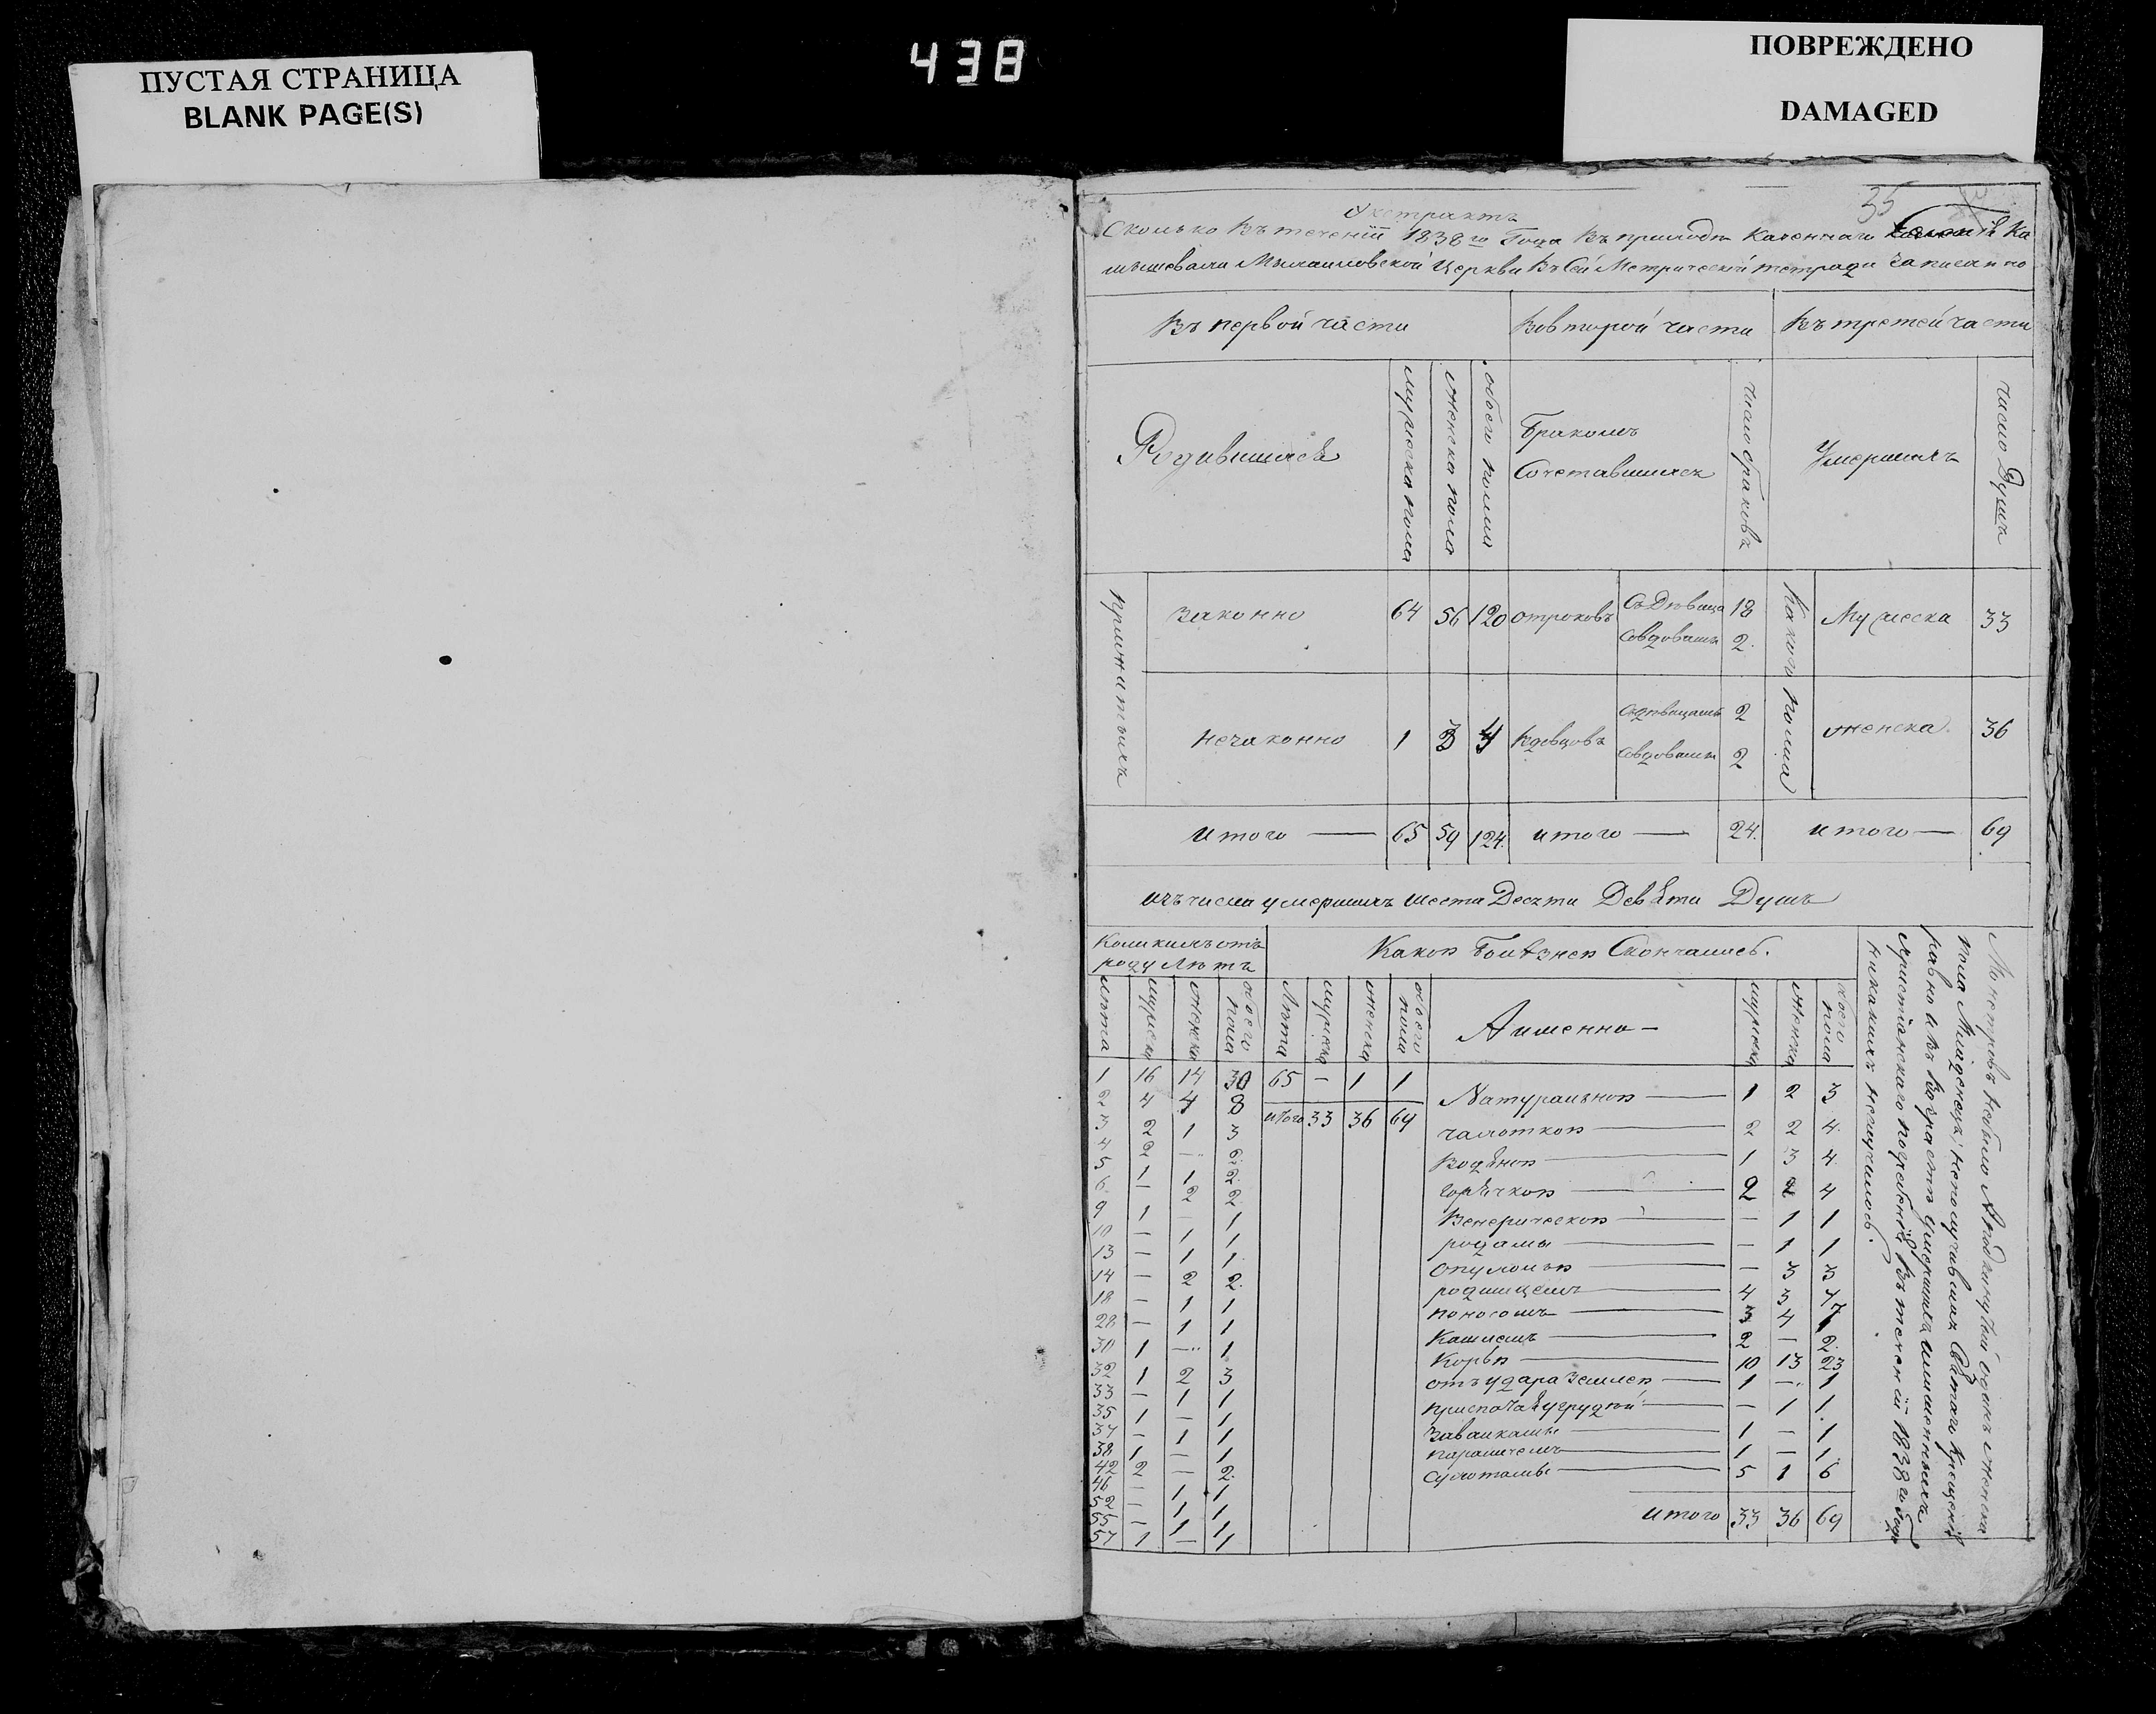 ПУСТАЯ СТРАНИЦА
BLANK PAGE(S)
438
ПОВРЕЖДЕНО
DAMAGED
35
Экстрактъ
Сколько въ теченіи 1838го Года въ приходѣ Казеннаго Ка
мышеваги Михаиловской Церкви въ Сей Метрической тетради записанно
Въ первой части Вовторой части Въ третей части
Родившихся мужеска пола женска пола обоего полла Бракомъ Сочетавшихся число браковъ Умершихъ число Душъ
Прижитыхъ Законно 64 56 120 отроковъ Съ Дѣвица 18 Какого полла Мужеска 33
Совдовами 2
незаконно 1 3 4 Вдовцовъ Сдѣвицами 2 женска 36
Совдовами 2
итого 65 59 124 итого 24 итого 69
изъ числа умершихъ шести Десяти Девяти Душъ
Коликихъ отъ роду лѣтъ Какою Болѣзнею Скончались.
лѣта мужеска женска обоего пола Лѣта мужеска женска обоего пола Аименно мужеска женска обоего пола
1 16 14 30 65 — 1 1
2 4 4 8 итого 33 36 69
3 2 1 3
4 2 — 2
5 1 1 2
6 — 2 2
9 1 — 1
10 — 1 1
13 — 1 1
14 — 2 2
18 — 1 1
28 — 1 1
30 1 — 1
32 1 2 3
33 — 1 1
35 1 — 1
37 — 1 1
38 1 — 1
42 2 — 2
46 — 1 1
52 — 1 1
55 — 1 1
57 1 — 1
Натуральною 1 2 3
чахоткою 2 2 4
Водяною 1 3 4
горячкою 2 2 4
Венерическою — 1 1
родами — 1 1
опухолью — 3 3
родимцемъ 4 3 7
поносомъ 3 4 7
Кашлемъ 2 — 2
Корью 10 13 23
отъ удара Землею 1 — 1
— 1 1
Завалками 1 — 1
параличемъ 1 — 1
Сухотами 5 1 6
итого 33 36 69
Монстровъ небыло Аподкинутый одинъ женска
пола Младенецъ, неполучившихъ Святаго крещенія
равно и въ Возрастѣ Умершихъ лишенныхъ
христіанскаго погребенія въ теченіи 1838го Года
никакихъ неслучилось.